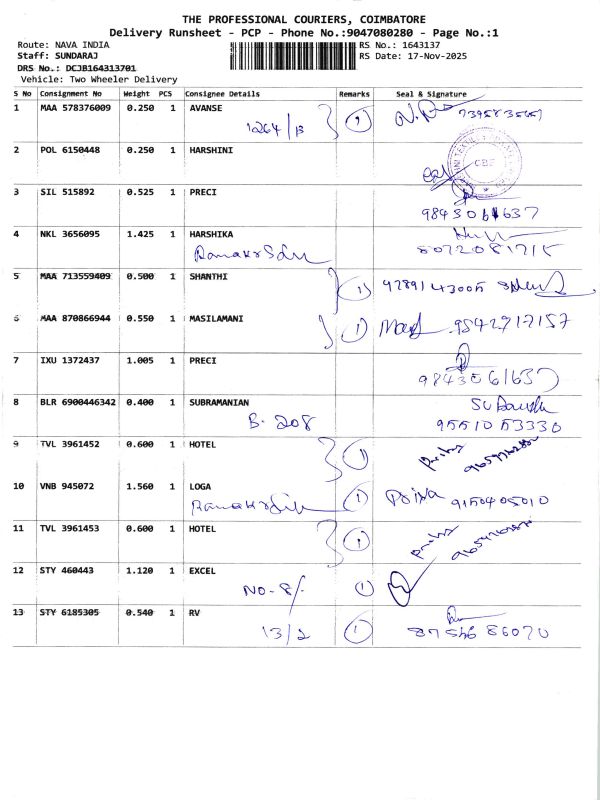 THE PROFESSIONAL COURIERS, COIMBATORE
Delivery Runsheet - PCP - Phone No.:9047080280 - Page No.:1
Route: NAVA INDIA RS No.: 1643137
Staff: SUNDARAJ RS Date: 17-Nov-2025
DRS No.: DCJB164313701
Vehicle: Two Wheeler Delivery
S No Consignment No Weight PCS Consignee Details Remarks Seal & Signature
1 MAA 578376009 0.250 1 AVANSE
1264/B 1
2 POL 6150448 0.250 1 HARSHINI
CBE
3 SIL 515892 0.525 1 PRECI
9843061637
4 NKL 3656095 1.425 1 HARSHIKA
8072081715
5 MAA 713559409 0.500 1 SHANTHI
1 9789143005
6 MAA 870866944 0.550 1 MASILAMANI
1 9542917157
7 IXU 1372437 1.005 1 PRECI
9843061637
8 BLR 6900446342 0.400 1 SUBRAMANIAN
B-208 9551053330
9 TVL 3961452 0.600 1 HOTEL
1
10 VNB 945072 1.560 1 LOGA
1 Priya 9150405010
11 TVL 3961453 0.600 1 HOTEL
1
12 STY 460443 1.120 1 EXCEL
NO-8/- 1
13 STY 6185305 0.540 1 RV
13/2 1 8754686070